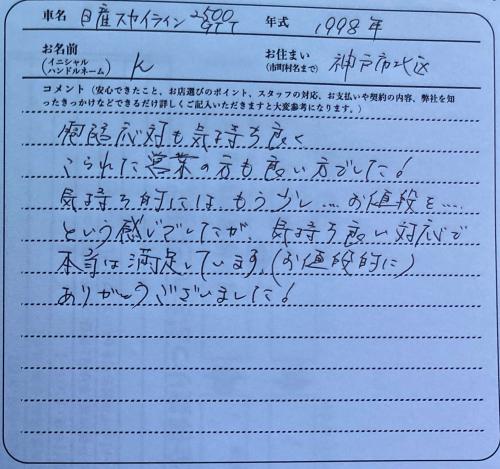 車名 日産スカイライン 2500 GTT 年式 1998年
お名前 (イニシャル ハンドルネーム) K お住まい (市町村名まで) 神戸市北区
コメント (安心できたこと、お店選びのポイント、スタッフの対応、お支払いや契約の内容、弊社を知
ったきっかけなどできるだけ詳しくご記入いただきますと大変参考になります。)
電話応対も気持ち良く
こられた営業の方も良い方でした!
気持ち的には、もう少し…お値段を……
という感じでしたが、気持ち良い対応で
本当は満足しています。(お値段的に)
ありがとうございました!